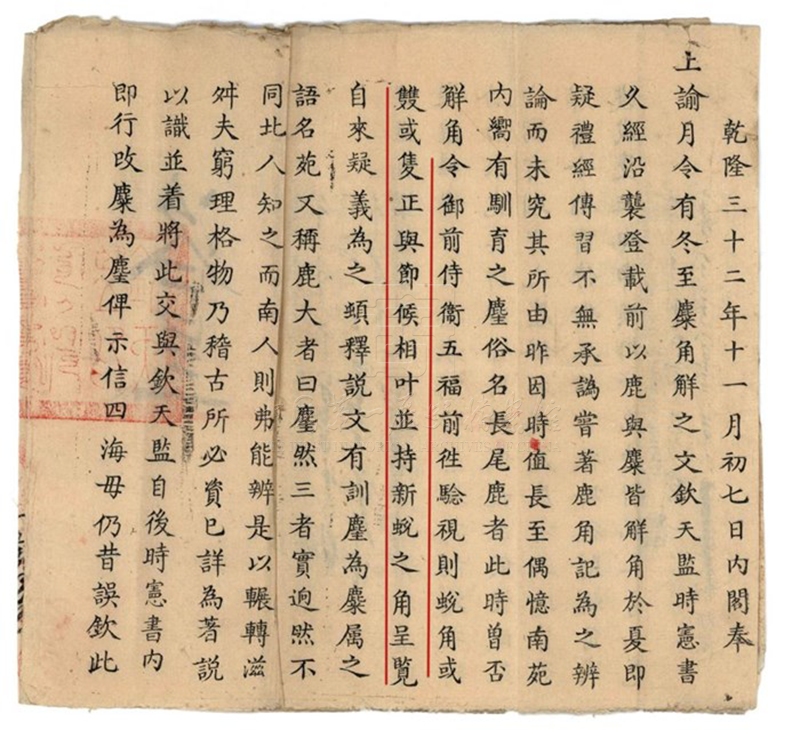 乾隆三十二年十一月初七日內閣奉
上諭月令有冬至麋角觧之文欽天監時憲書
久經沿襲登載前以鹿與麋皆觧角於夏即
疑禮經傳習不無承譌嘗著鹿角記為之辨
論而未究其所由昨因時值長至偶憶南苑
內嚮有馴育之麈俗名長尾鹿者此時曾否
觧角令御前侍衞五福前徃騐視則蛻角或
雙或隻正與節候相叶並持新蛻之角呈覽
自來疑義為之頓釋説文有訓麈為麋屬之
語名苑又稱鹿大者曰麈然三者實逈然不
同北人知之而南人則弗能辨是以輾轉滋
舛夫窮理格物乃稽古所必資已詳為著説
以識並着將此交與欽天監自後時憲書內
即行改麋為麈俾示信四海毋仍昔誤欽此